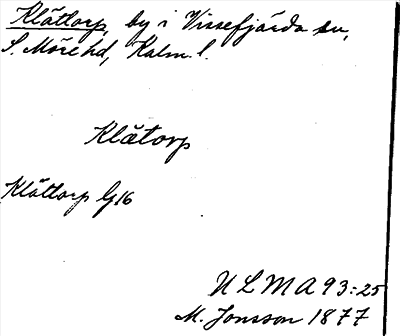 Klättorp, by i Vissefjärda sn,
S. Möre hd, Kalm. l.
Klätorp
Klättorp G16
ULMA 93:25
M. Jonsson 1877